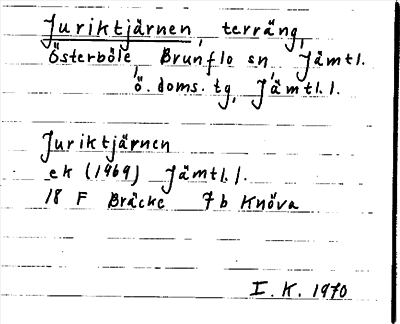 Juriktjärnen, terräng,
Österböle, Brunflo sn, Jämtl.
ö. doms. tg, Jämtl. l.
Juriktjärnen
ek (1969) Jämtl. l.
18 F Bräcke 7b Knöva
I. K. 1970